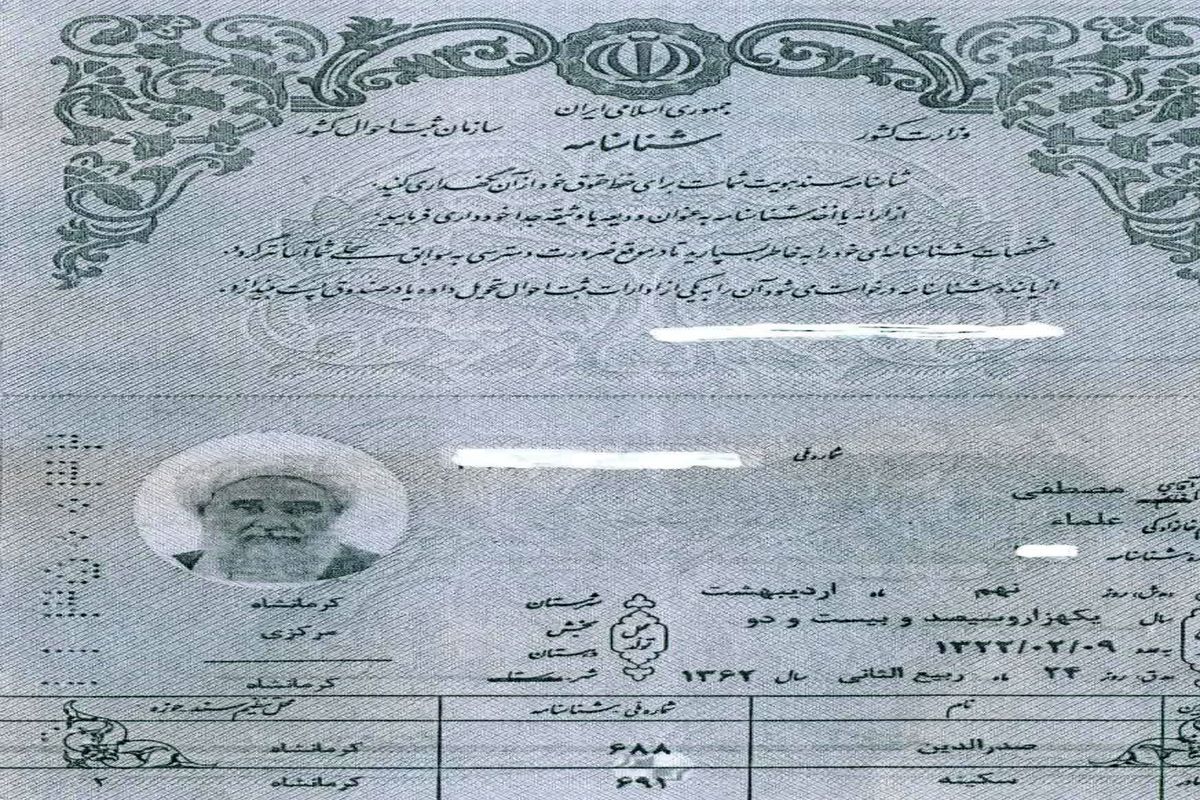 جمهوری اسلامی ایران
وزارت کشور
سازمان ثبت احوال کشور
شناسنامه
شناسنامه سند هویت شماست برای حفظ حقوق خود از آن نگهداری کنید.
از ارائه یا اخذ شناسنامه به عنوان ودیعه یا وثیقه جدا خودداری فرمایید.
مشخصات شناسنامه‌ای خود را به خاطر بسپارید تا در موقع ضرورت دسترسی به سوابق سجلی شما آسانتر گردد.
از یابنده شناسنامه درخواست می شود آن را به یکی از ادارات ثبت احوال تحویل داده یا در صندوق پست بیندازد.
شماره ملی
آقای مصطفی
علماء
شناسنامه
روز نهم ماه اردیبهشت
سال یکهزار و سیصد و بیست و دو
۱۳۲۲/۰۲/۰۹
روز ۲۴ ماه ربیع الثانی سال ۱۳۶۲
محل تولد
شهرستان کرمانشاه
بخش مرکزی
دهستان
شهر کرمانشاه
نام شماره ملی/شناسنامه محل تنظیم سند/حوزه
صدرالدین ۶۸۸ کرمانشاه
سکینه ۶۹۱ کرمانشاه ۲